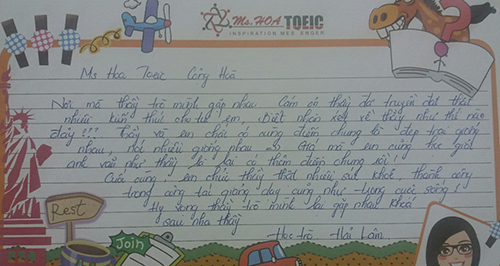 Ms. HOA TOEIC
INSPIRATION MESSENGER
Ms Hoa Toeic Cộng Hoà
Nơi mà thầy trò mình gặp nhau. Cám ơn thầy đã truyền đạt thật
nhiều kiến thức cho tụi em, biết nhận xét về thầy như thế nào
đây!!! Thầy và em chắc có cùng điểm chung là đẹp trai giống
nhau, nói nhiều giống nhau. Giá mà em cũng học giỏi
anh văn như thầy là lại có thêm điểm chung rồi!
Cuối cùng, em chúc thầy thật nhiều sức khoẻ, thành công
trong công tác giảng dạy cũng như trong cuộc sống!
Hy vọng thầy trò mình lại gặp nhau khoá
sau nha thầy
Học trò Thái Lâm
Rest
Join